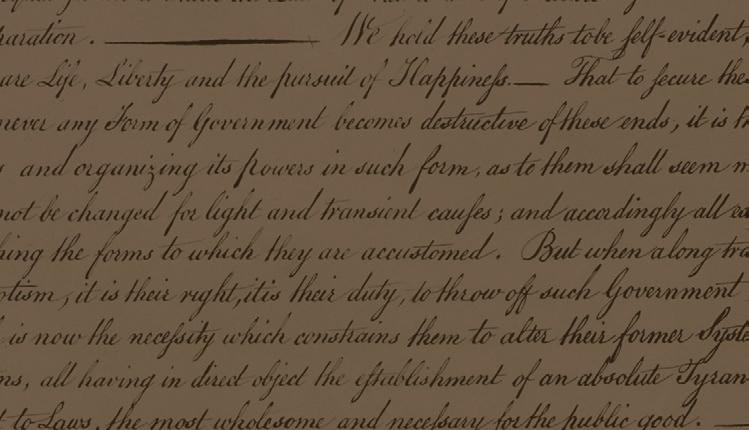 paration. We hold these truths to be self-evident,
are Life, Liberty and the pursuit of Happiness.— That to secure the
never any Form of Government becomes destructive of these ends, it is
and organizing its powers in such form, as to them shall seem
not be changed for light and transient causes; and accordingly all
hing the forms to which they are accustomed. But when a long
otism, it is their right, it is their duty, to throw off such Government
is now the necessity which constrains them to alter their former Syste
ns, all having in direct object the establishment of an absolute Tyran
t to Laws, the most wholesome and necessary for the public good. —